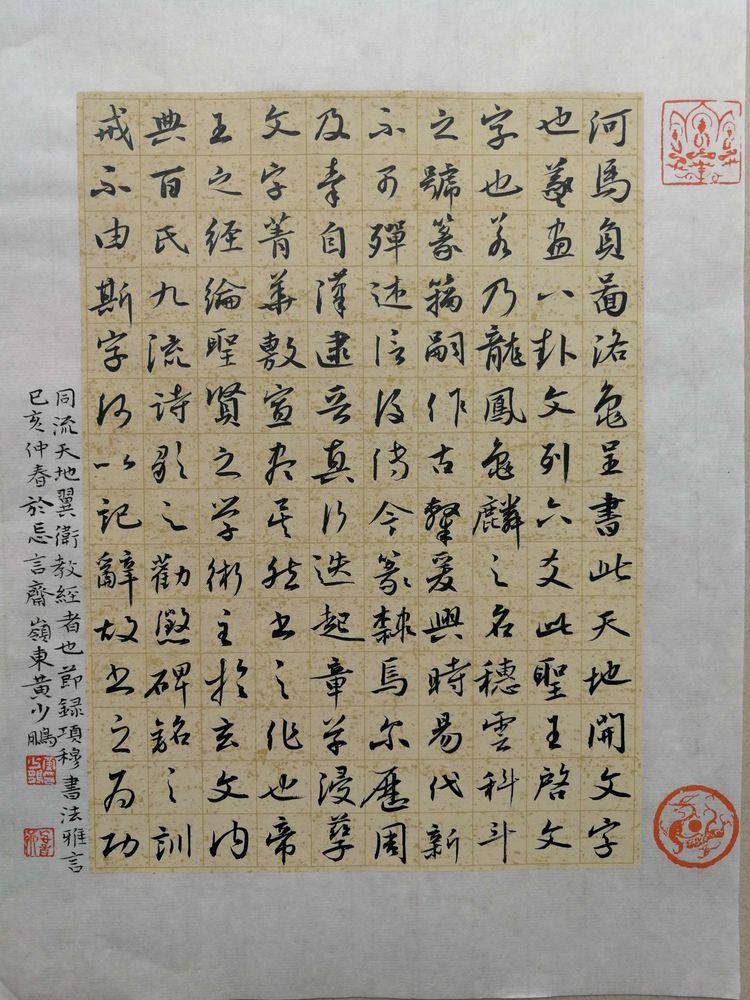 河馬負啚洛龜呈書此天地開文字
也羲畫八卦文列六爻此聖王啓文
字也若乃龍鳳龜麟之名穗雲科斗
之號篆籀嗣作古隸爰興時易代新
不可殫述信後傳今篆隸焉尔歷周
及秦自漢逮晉真行迭起章草浸孳
文字菁華敷宣盡矣然書之作也帝
王之經綸聖賢之學術至於玄文內
典百氏九流詩歌之勸懲碑銘之訓
戒不由斯字何以記辭故書之為功
同流天地翼衛教經者也節録項穆書法雅言
己亥仲春於忘言齋嶺東黃少鵬